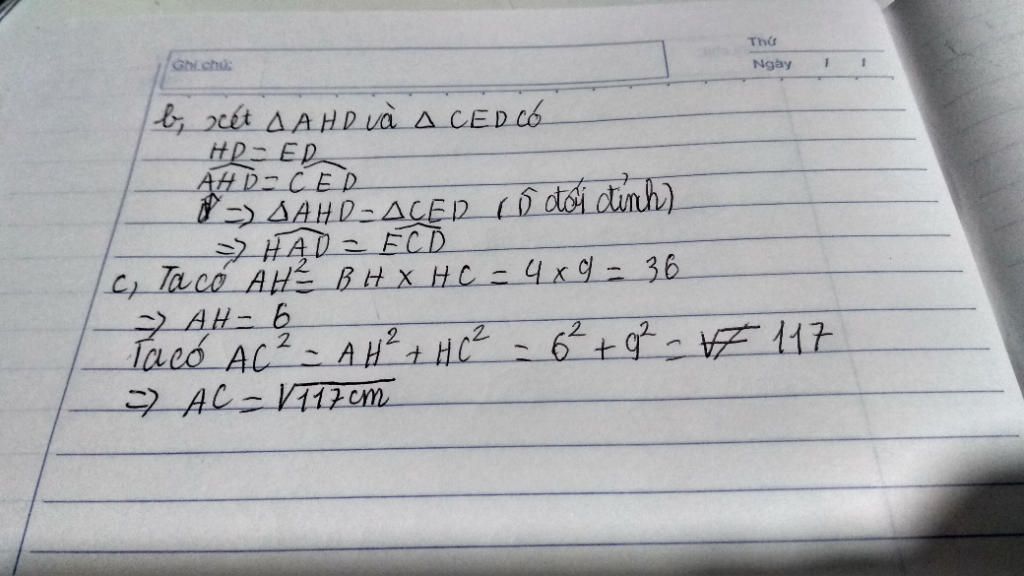 Thứ
Ghi chú:
Ngày / /
b, xét ΔAHD và Δ CED có
HD = ED
AHD = CED
=> ΔAHD = ΔCED ( đối đỉnh)
=> HAD = ECD
c, Ta có AH² = BH x HC = 4 x 9 = 36
=> AH = 6
Ta có AC² = AH² + HC² = 6² + 9² = 117
=> AC = √117cm